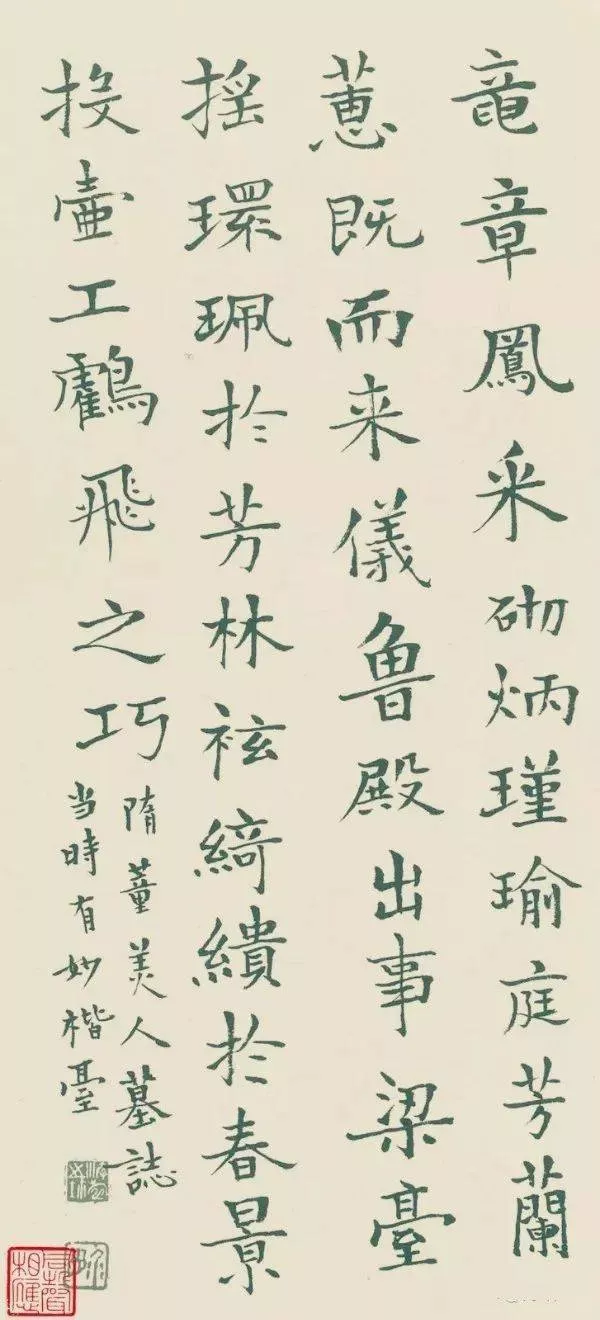 竜章鳳采砌炳瑾瑜庭芳蘭
蕙既而来儀魯殿出事梁臺
摇環珮於芳林袨綺繢於春景
投壺工鸖飛之巧
隋董美人墓誌
当時有妙楷臺
同聲相應